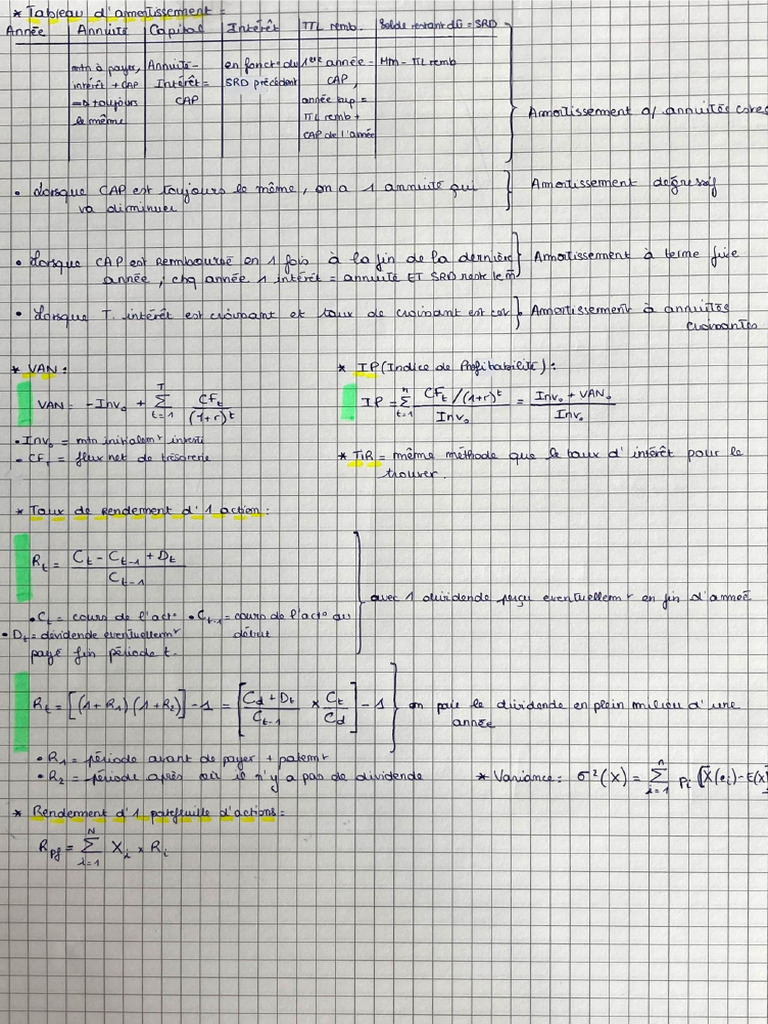 * Tableau d'amortissement =
Année | Annuité | Capital | Intérêt | TTL remb. | Solde restant dû = SRD
mtn à payer, | Annuité - | en fonct° du | 1ère année = | Mm - TTL remb
intérêt + CAP | Intérêt = | SRD précédent | CAP,
=> toujours | CAP | année sup =
le même | TTL remb +
CAP de l'année
Amortissement a/ annuités cores
• Lorsque CAP est toujours le même, on a 1 annuité qui
va diminuer
Amortissement dégressif
• Lorsque CAP est remboursé en 1 fois à la fin de la dernière
année ; chq année 1 intérêt = annuité ET SRD reste le m̂
Amortissement à terme fixe
• Lorsque T. intérêt est croissant et taux de croissant est cst
Amortissement à annuités
croissantes
* VAN :
VAN = -Inv₀ + Σ_{t=1}^{T} CF_t / (1+r)^t
• Inv₀ = mtn initialemt investi
- CF_t = flux net de trésorerie
* IP (Indice de Profitabilité) :
IP = Σ_{t=1}^{n} CF_t/(1+r)^t / Inv₀ = Inv₀ + VAN₀ / Inv₀
* TiR = même méthode que le taux d'intérêt pour le
trouver.
* Taux de rendement d'1 action :
R_t = C_t - C_{t-1} + D_t / C_{t-1}
avec 1 dividende perçu eventuellemt en fin d'année
• C_t = cours de l'act° • C_{t-1} = cours de l'act° au
• D_t = dévidende eventuellemt début
payé fin période t.
R_t = [(1+R₁)(1+R₂)] - 1 = [C_d + D_t / C_{t-1} × C_t / C_d] - 1
on paie le dividende en plein milieu d'une
année
• R₁ = période avant de payer + paiemt
• R₂ = période après où il n'y a pas de dividende
* Variance : σ²(X) = Σ_{i=1}^{n} p_i [X(e_i) - E(x)]
* Rendement d'1 portefeuille d'actions :
R_pf = Σ_{i=1}^{N} X_i × R_i